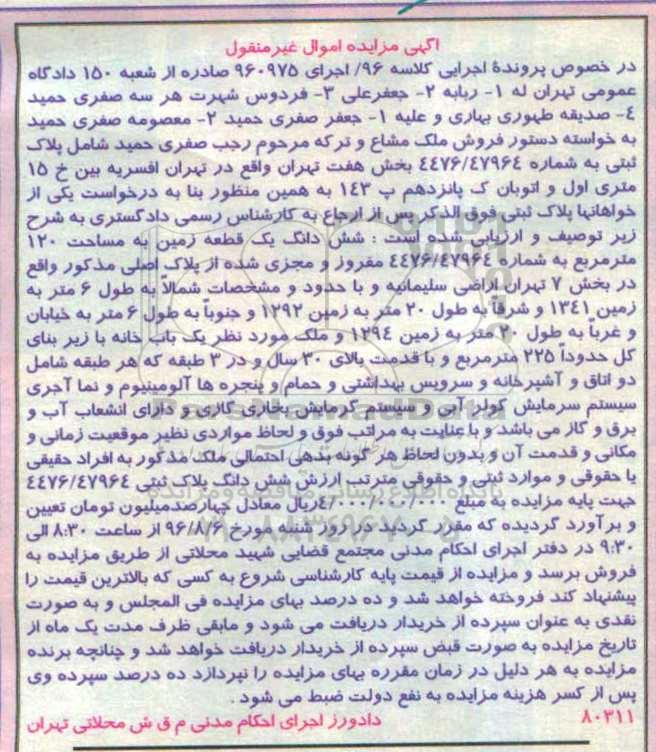 اگهی مزایده اموال غیرمنقول
در خصوص پروندهٔ اجرایی کلاسه ۹۶/ اجرای ۹۶۰۹۷۵ صادره از شعبه ۱۵۰ دادگاه
عمومی تهران له ۱- ربابه ۲- جعفرعلی ۳- فردوس شهرت هر سه صفری حمید
٤- صدیقه طهوری بهاری و علیه ۱- جعفر صفری حمید ۲- معصومه صفری حمید
به خواسته دستور فروش ملک مشاع و ترکه مرحوم رجب صفری حمید شامل پلاک
ثبتی به شماره ٤٤٧۶/٤٧٩۶٤ بخش هفت تهران واقع در تهران افسریه بین خ ۱۵
متری اول و اتوبان ک پانزدهم پ ۱٤۳ به همین منظور بنا به درخواست یکی از
خواهانها پلاک ثبتی فوق الذکر پس از ارجاع به کارشناس رسمی دادگستری به شرح
زیر توصیف و ارزیابی شده است : شش دانگ یک قطعه زمین به مساحت ۱۲۰
مترمربع به شماره ٤٤٧۶/٤٧٩۶٤ مفروز و مجزی شده از پلاک اصلی مذکور واقع
در بخش ۷ تهران اراضی سلیمانیه و با حدود و مشخصات شمالاً به طول ۶ متر به
زمین ۱۳٤۱ و شرقاً به طول ۲۰ متر به زمین ۱۲۹۲ و جنوباً به طول ۶ متر به خیابان
و غرباً به طول ۲۰ متر به زمین ۱۲۹٤ و ملک مورد نظر یک باب خانه با زیر بنای
کل حدوداً ۲۲۵ مترمربع و با قدمت بالای ۳۰ سال و در ۳ طبقه که هر طبقه شامل
دو اتاق و آشپرخانه و سرویس بهداشتی و حمام و پنجره ها آلومینیوم و نما آجری
سیستم سرمایش کولر آبی و سیستم گرمایش بخاری گازی و دارای انشعاب آب و
برق و گاز می باشد و با عنایت به مراتب فوق و لحاظ مواردی نظیر موقعیت زمانی و
مکانی و قدمت آن و بدون لحاظ هر گونه بدهی احتمالی ملک مذکور به افراد حقیقی
یا حقوقی و موارد ثبتی و حقوقی مترتب ارزش شش دانگ پلاک ثبتی ٤٤٧۶/٤٧٩۶٤
جهت پایه مزایده به مبلغ ٤/۰۰۰/۰۰۰/۰۰۰ریال معادل چهارصدمیلیون تومان تعیین
و برآورد گردیده که مقرر گردید در روز شنبه مورخ ۹۶/۸/۶ از ساعت ۸:۳۰ الی
۹:۳۰ در دفتر اجرای احکام مدنی مجتمع قضایی شهید محلاتی از طریق مزایده به
فروش برسد و مزایده از قیمت پایه کارشناسی شروع به کسی که بالاترین قیمت را
پیشنهاد کند فروخته خواهد شد و ده درصد بهای مزایده فی المجلس و به صورت
نقدی به عنوان سپرده از خریدار دریافت می شود و مابقی ظرف مدت یک ماه از
تاریخ مزایده به صورت قبض سپرده از خریدار دریافت خواهد شد و چنانچه برنده
مزایده به هر دلیل در زمان مقرره بهای مزایده را نپردازد ده درصد سپرده وی
پس از کسر هزینه مزایده به نفع دولت ضبط می شود .
۸۰۳۱۱ دادورز اجرای احکام مدنی م ق ش محلاتی تهران